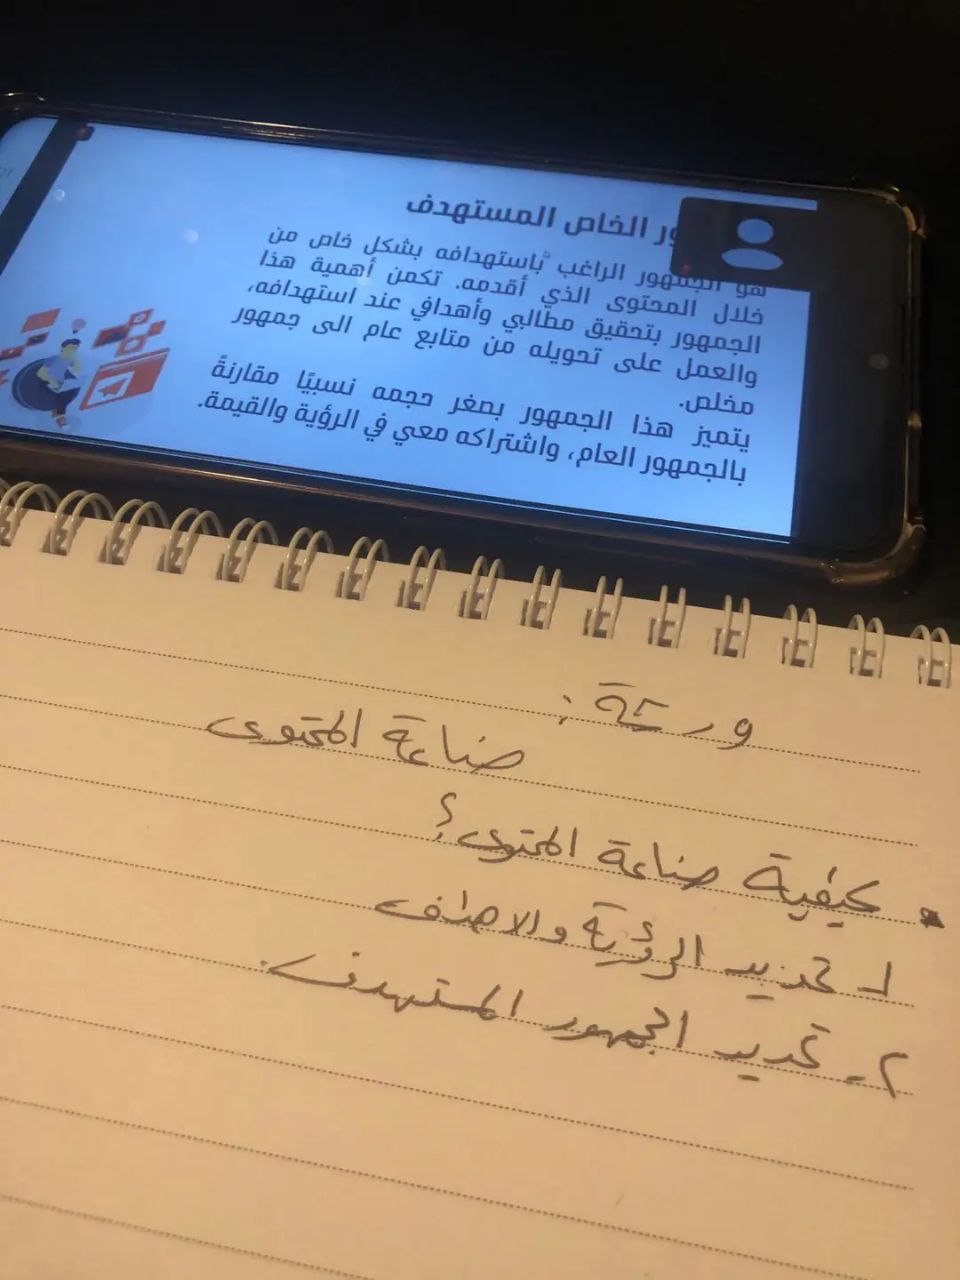 الخاص المستهدف
هو الجمهور الراغب باستهدافه بشكل خاص من
خلال المحتوى الذي أقدمه. تكمن أهمية هذا
الجمهور بتحقيق مطالبي وأهدافي عند استهدافه،
والعمل على تحويله من متابع عام الى جمهور
مخلص.
يتميز هذا الجمهور بصغر حجمه نسبيًا مقارنةً
بالجمهور العام، واشتراكه معي في الرؤية والقيمة.
ورشة:
صناعة المحتوى
• كيفية صناعة المحتوى؟
١- تحديد الرؤية والاهداف
٢- تحديد الجمهور المستهدف.